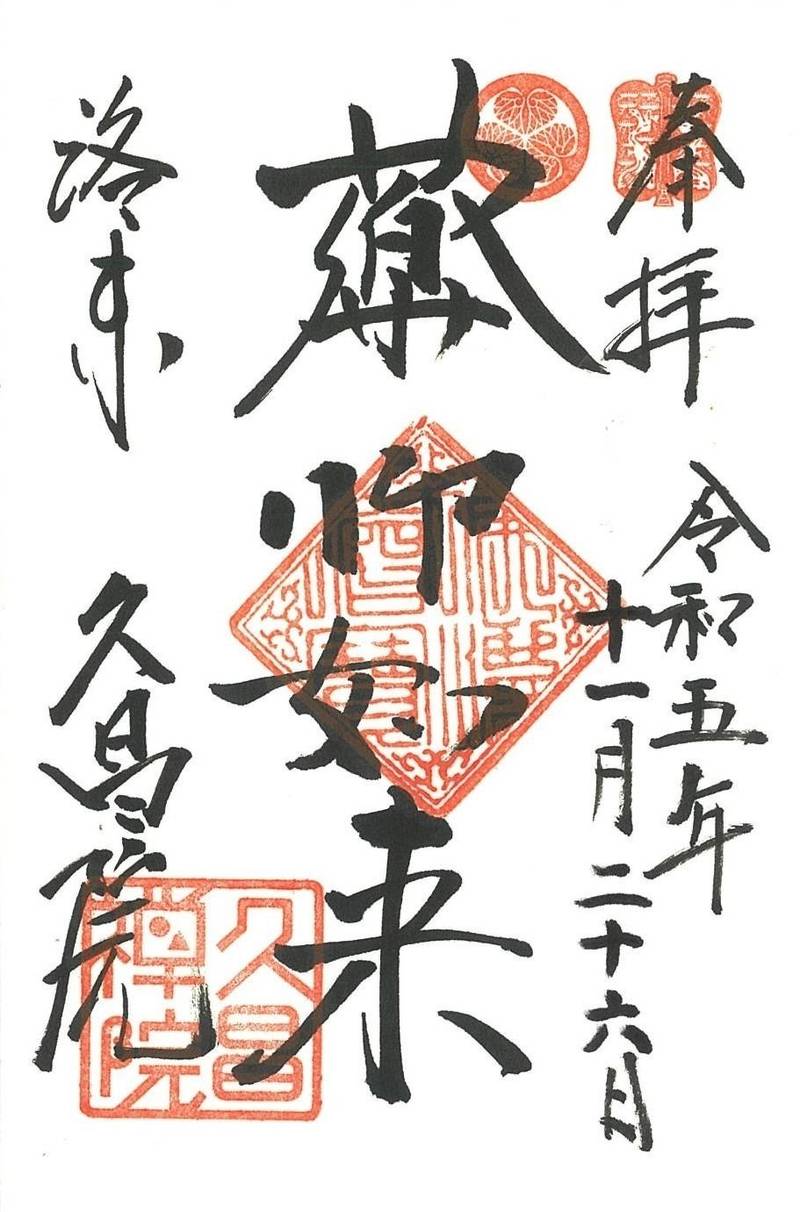 奉拝
令和五年
十一月二十六日
薬師如来
洛東
久昌院
久昌
禅院